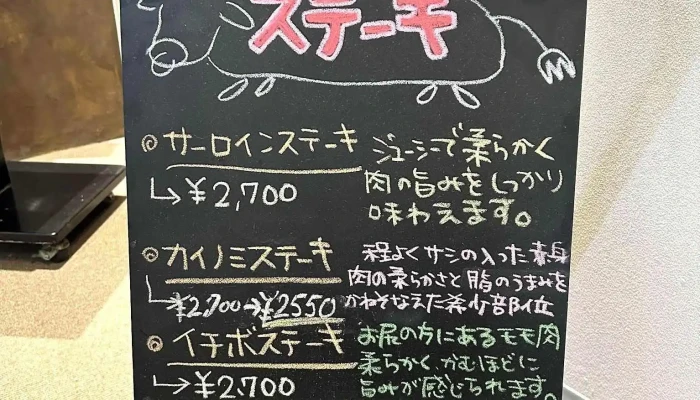 ステーキ
◎サーロインステーキ
↳¥2,700
ジューシーで柔らかく
肉の旨みをしっかり
味わえます。
◎カイノミステーキ
↳¥2,700→¥2550
程よくサシの入った赤身
肉の柔らかさと脂のうまみを
かねそなえた希少部位
◎イチボステーキ
↳¥2,700
お尻の方にあるモモ肉
柔らかく、かむほどに
旨みが感じられます。